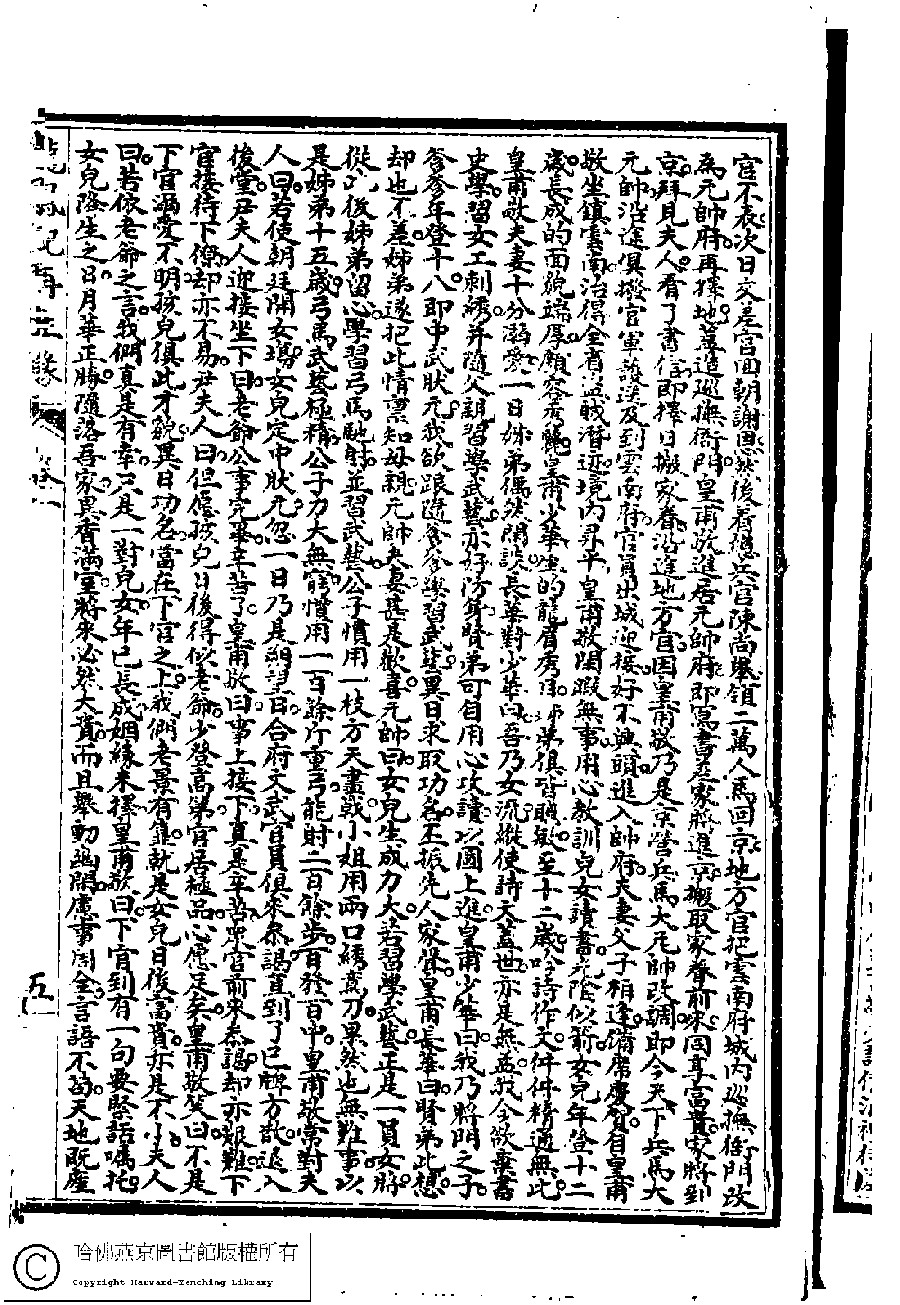 官不表次日交差官回朝謝恩然後着總兵官陳尚舉領二萬人馬回京地方官把雲南府城內巡撫衙門改
為元帥府再擇地蓋造巡撫衙門皇甫敬進居元帥府即寫書差家將進京搬取家眷前來同享富貴家將到
京拜見夫人看了書信即擇日搬家眷沿途地方官因皇甫敬乃是京營兵馬大元帥改調即今天下兵馬大
元帥沿途俱撥官軍護送及到雲南府官員出城迎接好不興頭進入帥府夫妻父子相逢備席慶賀自皇甫
敬坐鎮雲南治得全省盜賊潛迹境內昇平皇甫敬閑暇無事用心教訓兒女讀書光陰似箭女兒年登十二
歲長成的面貌端厚顏容秀麗皇甫少華生的龍眉秀目姊弟俱皆聰敏至十二歲吟詩作文件件精通無比
皇甫敬夫妻十分溺愛一日姊弟偶然閑談長華對少華曰吾乃女流縱使詩才蓋世亦是無益我今欲棄書
史學習女工刺綉并隨父親習學武藝亦好防身賢弟可自用心攻讀以圖上進皇甫少華曰我乃將門之子
爹爹年登十八即中武狀元我欲跟隨爹爹學習武藝異日求取功名丕振先人家聲皇甫長華曰賢弟此想
却也不差姊弟遂把此情稟知母親元帥夫妻甚是歡喜元帥曰女兒生成力大若習學武藝正是一員女將
從此後姊弟留心學習弓馬馳射並習武藝公子慣用一枝方天畫戟小姐用兩口綉鸞刀果然也無難事以
是姊弟十五歲弓馬武藝極精公子力大無窮慣用一百餘斤重弓能射二百餘步百發百中皇甫敬常對夫
人曰若使朝廷開女場女兒定中狀元忽一日乃是朔望日合府文武官員俱來叅謁直到了巳牌方散退入
後堂尹夫人迎接坐下曰老爺公事完畢辛苦了皇甫敬曰事上接下真是辛苦眾官前來叅謁却亦艱難下
官接待下僚却亦不易尹夫人曰但愿孩兒日後得似老爺少登高第官居極品心愿足矣皇甫敬笑曰不是
下官溺愛不明孩兒俱此才貌異日功名當在下官之上我們老景有靠就是女兒日後富貴亦是不小夫人
曰若依老爺之言我們真是有幸只是一對兒女年已長成姻緣未擇皇甫敬曰下官到有一句要緊話囑托
女兒降生之日月華正勝隨落吾家異香滿室將來必然大貴而且舉動幽閑慮事周全言語不茍天地既產
五
哈佛燕京圖書館版權所有
Copyright Harvard-Yenching Library